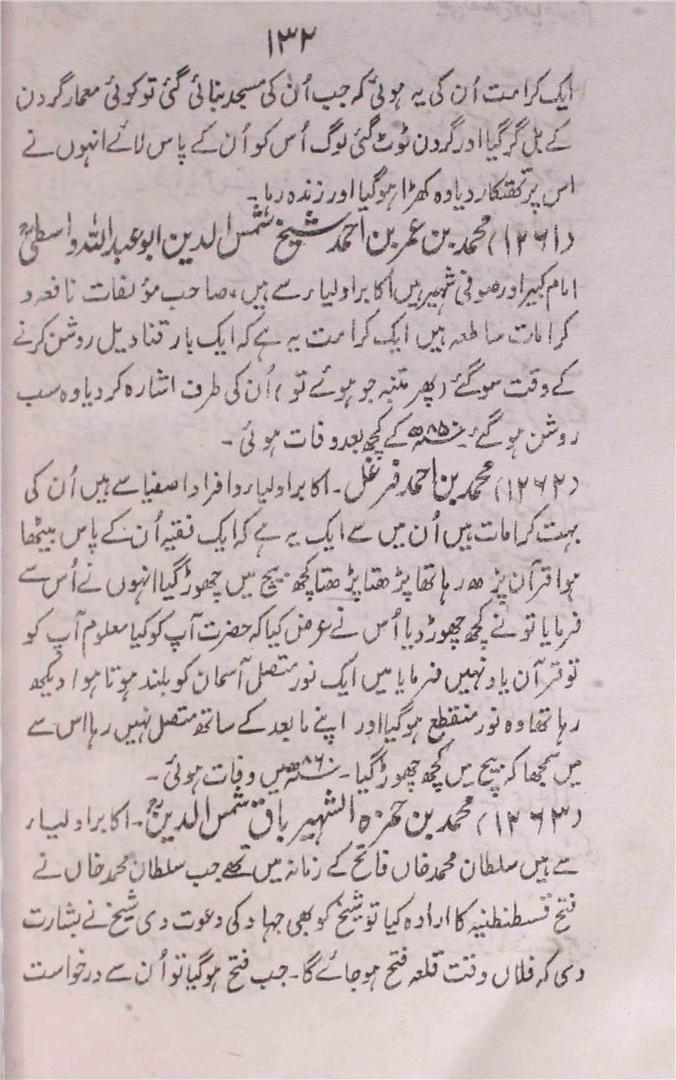 ۱۳۲
ایک کرامت اُن کی یہ ہوئی کہ جب اُن کی مسجد بنائی گئی تو کوئی معمار گردن
کے بل گر گیا اور گردن ٹوٹ گئی لوگ اُس کو اُن کے پاس لائے انہوں نے
اس پر تھتکار دیا وہ کھڑا ہوگیا اور زندہ رہا۔
(۱۲۶۱) محمد بن عمر بن احمد شیخ شمس الدین ابو عبد اللہ واسطیؒ
امام کبیر اور صوفی شہیر ہیں اکابر اولیاء سے ہیں، صاحب مؤلفات نافعہ و
کرامات ساطعہ ہیں ایک کرامت یہ ہے کہ ایک بار قنادیل روشن کرنے
کے وقت سوگئے (پھر متنبہ جو ہوئے تو) اُن کی طرف اشارہ کردیا وہ سب
روشن ہوگئے ۸۵۰ھ کے کچھ بعد وفات ہوئی۔
(۱۲۶۲) محمد بن احمد فرغل۔ اکابر اولیاء و افراد اصفیا سے ہیں اُن کی
بہت کرامات ہیں اُن میں سے ایک یہ ہے کہ ایک فقیہ اُن کے پاس بیٹھا
ہوا قرآن پڑھ رہا تھا پڑھتا پڑھتا کچھ بیچ میں چھوڑ گیا انہوں نے اُس سے
فرمایا تو نے کچھ چھوڑ دیا اُس نے عرض کیا کہ حضرت آپ کو کیا معلوم آپ کو
تو قرآن یاد نہیں فرمایا میں ایک نور متصل آسمان کو بلند ہوتا ہوا دیکھ
رہا تھا وہ نور منقطع ہوگیا اور اپنے مابعد کے ساتھ متصل نہیں رہا اس سے
میں سمجھا کہ بیچ میں کچھ چھوڑ گیا۔ ۸۶۰ھ میں وفات ہوئی۔
(۱۲۶۳) محمد بن حمزہ الشہیر باق شمس الدینؒ۔ اکابر اولیاء
سے ہیں سلطان محمد خاں فاتح کے زمانہ میں تھے جب سلطان محمد خاں نے
فتح قسطنطنیہ کا ارادہ کیا تو شیخ کو بھی جہاد کی دعوت دی شیخ نے بشارت
دی کہ فلاں وقت قلعہ فتح ہوجائے گا۔ جب فتح ہوگیا تو اُن سے درخواست